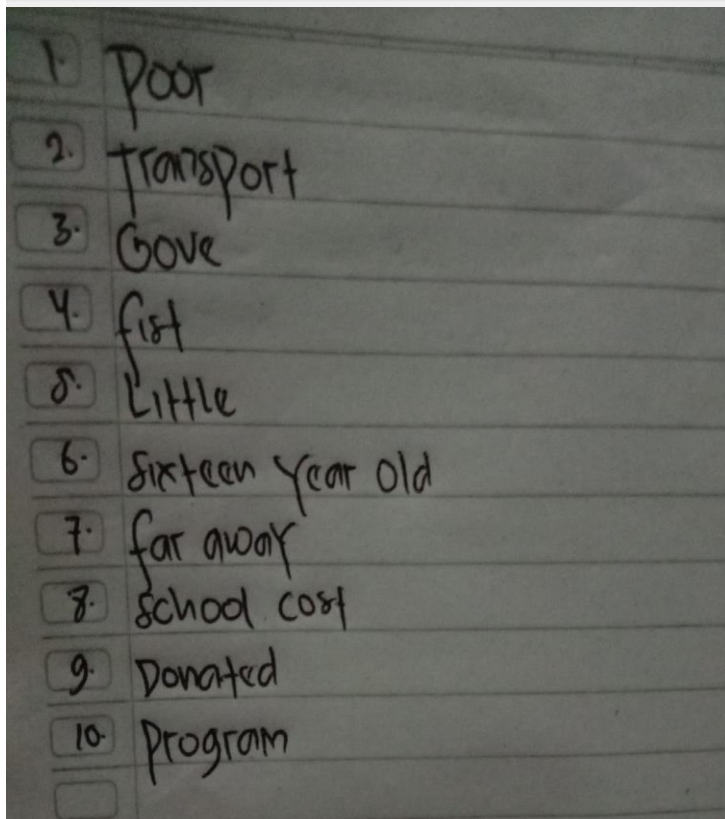 1. Poor
2. Transport
3. Gove
4. fist
5. Little
6. Sixteen year old
7. far away
8. School cost
9. Donated
10. Program